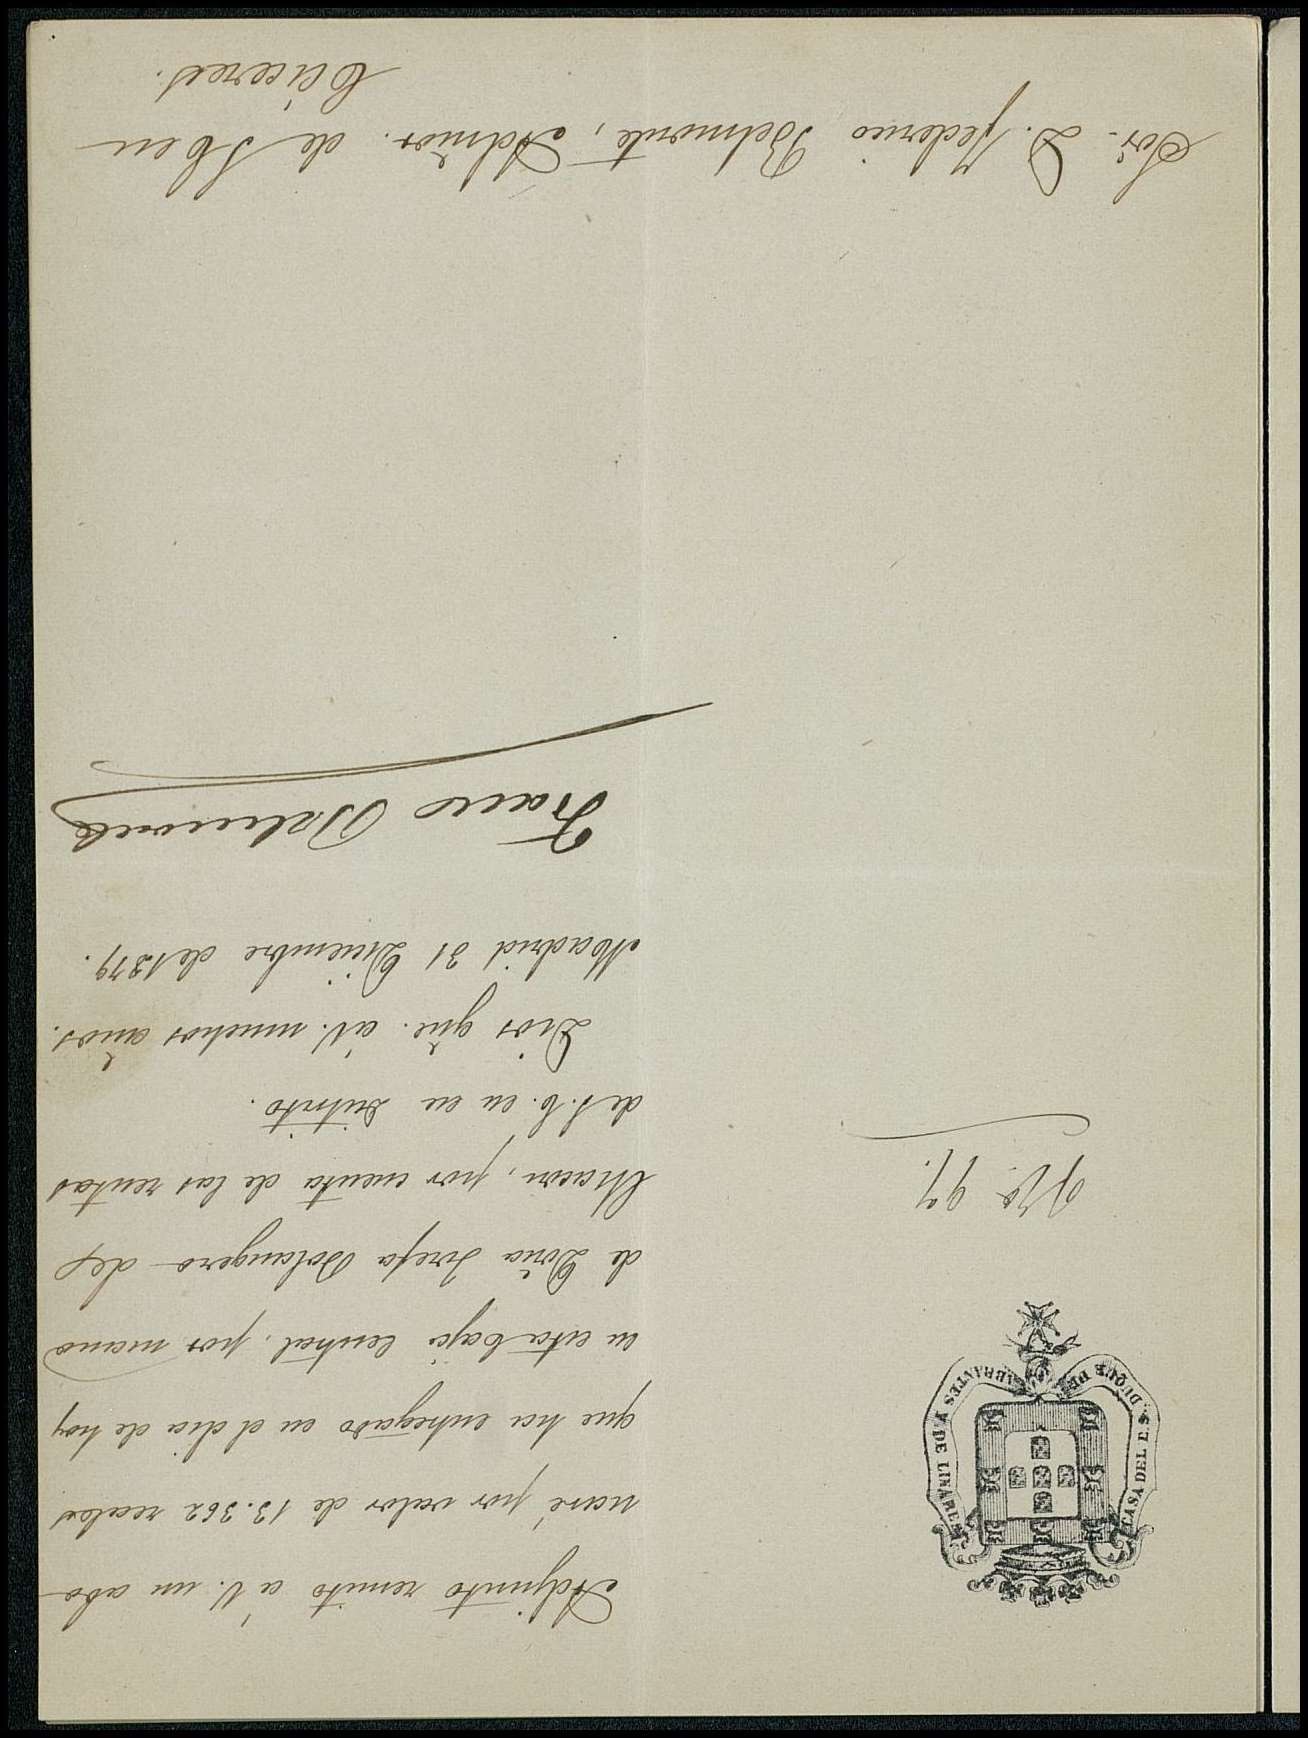 CASA DEL E. S. DUQUE DE ABRANTES Y DE LINARES
Nº 97.
Adjunto remito á V. un abo-
naré por valor de 13.362 reales
que ha entregado en el dia de hoy
en esta Caja Central, por mano
de Doña Josefa Bolangero del
Chacon, por cuenta de las rentas
de S.E. en su distrito.
Dios gūe. á V. muchos años.
Madrid 31 Diciembre de 1879.
Franco Belmonte
Sor. D. Federico Belmonte, Admor. de S. E. en
Cáceres.